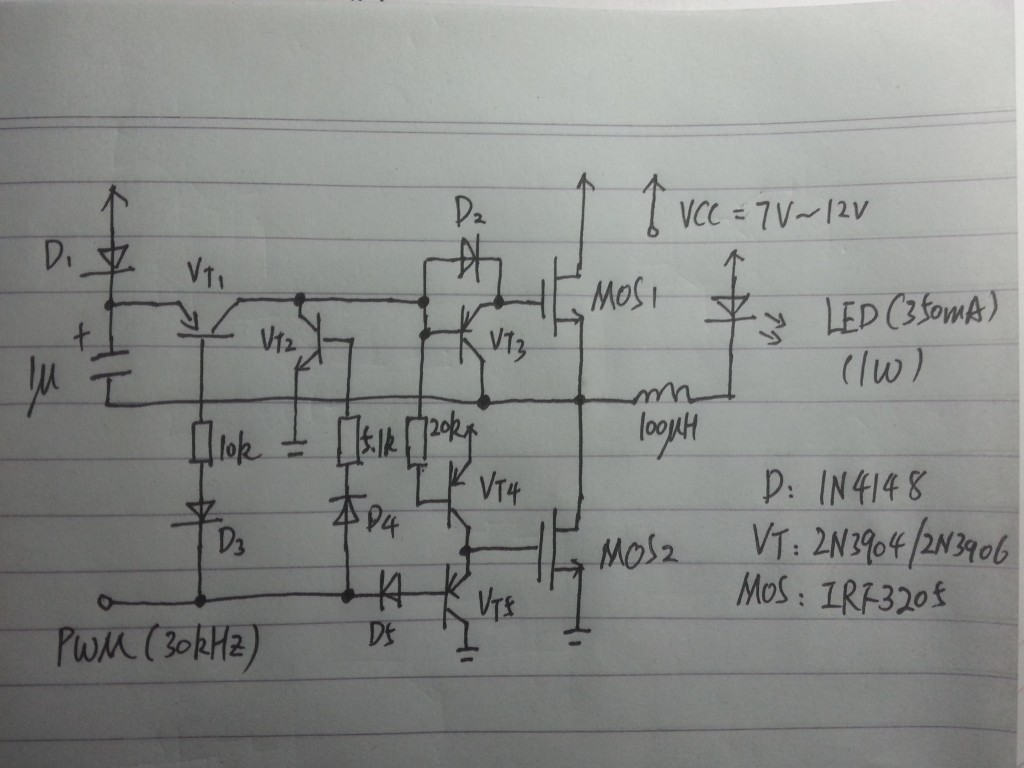 D1
VT1
D2
VCC = 7V~12V
MOS1
LED (350mA)
(1W)
+
1μ
VT2
VT3
10k
5.1k
20k
100μH
VT4
D3
D4
D: 1N4148
MOS2
VT: 2N3904/2N3906
D5
VT5
MOS: IRF3205
PWM (30kHz)